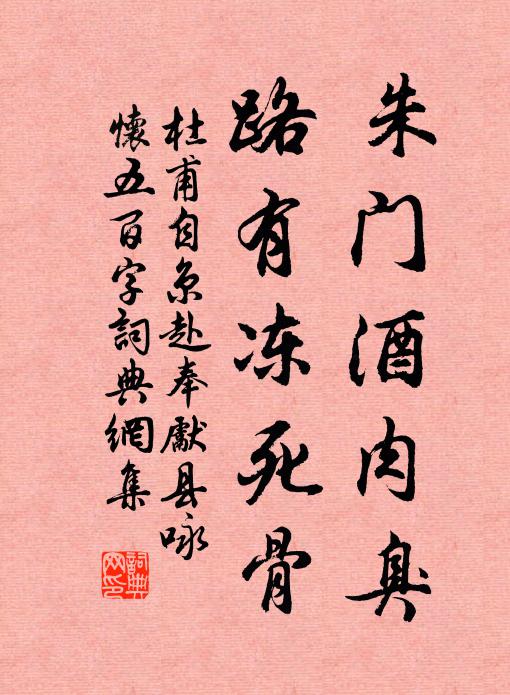 朱门酒肉臭
路有冻死骨
杜甫自京赴奉献县咏
懷五百字詞典網集
詞典
网印